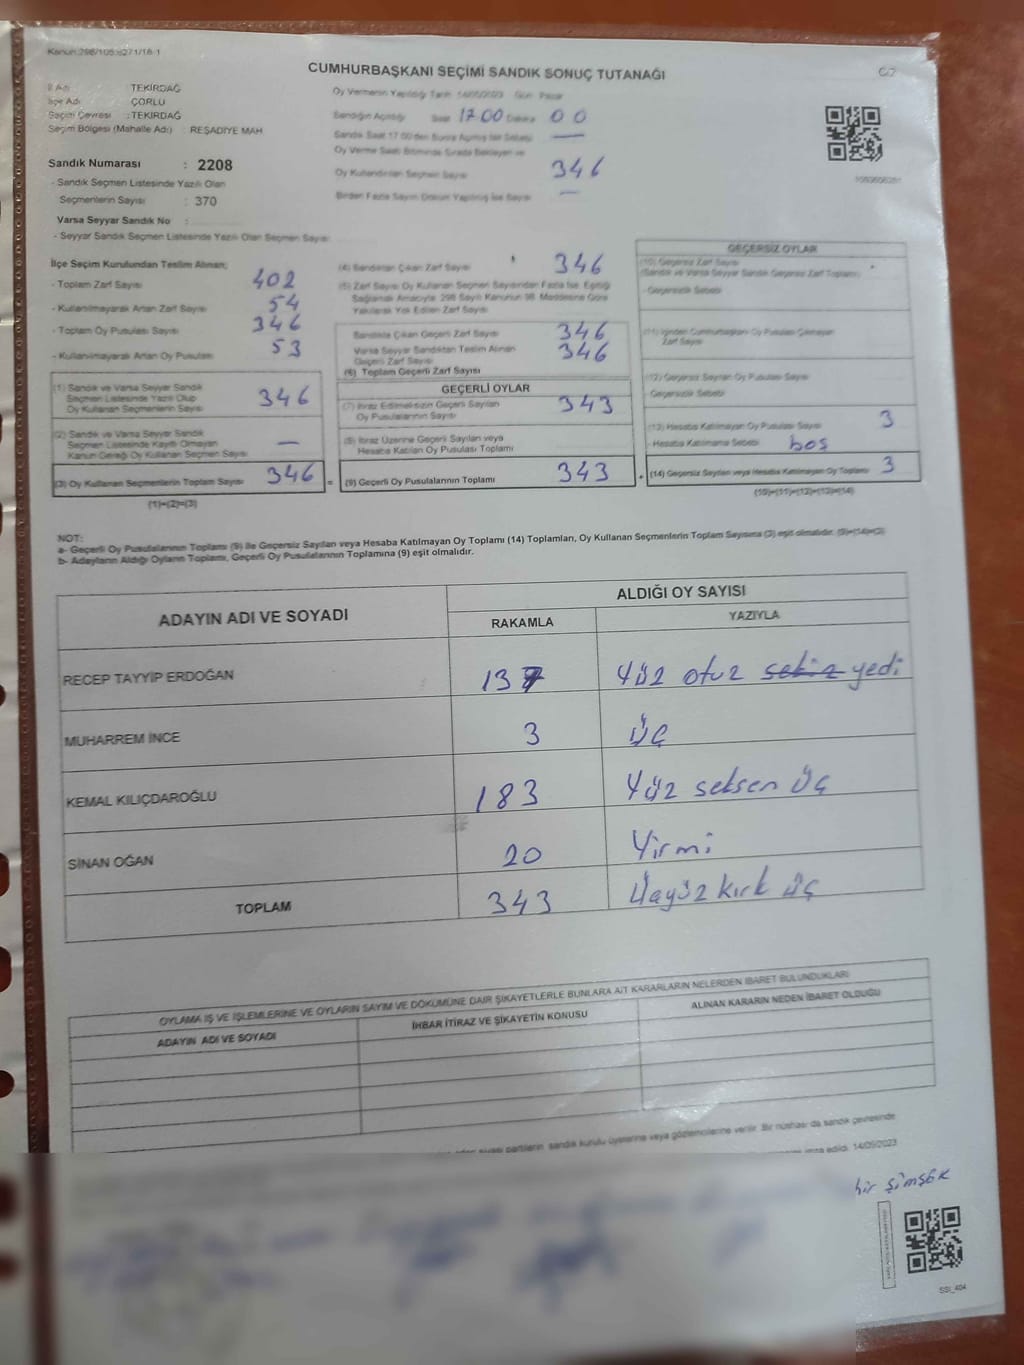 Kanun:298/105:6271/18-1
CUMHURBAŞKANI SEÇİMİ SANDIK SONUÇ TUTANAĞI
İl Adı TEKİRDAĞ
İlçe Adı ÇORLU
Seçim Çevresi : TEKİRDAĞ
Seçim Bölgesi (Mahalle Adı) : REŞADİYE MAH
Sandık Numarası : 2208
- Sandık Seçmen Listesinde Yazılı Olan
Seçmenlerin Sayısı : 370
Varsa Seyyar Sandık No :
- Seyyar Sandık Seçmen Listesinde Yazılı Olan Seçmen Sayısı
Oy Vermenin Yapıldığı Tarih 14/05/2023 Gün Pazar
Sandığın Açıldığı Saat 17 00 Dakika 00
Sandık Saat 17:00'den Sonra Açılmış İse Sebebi —
Oy Verme Saati Bitiminde Sırada Bekleyen ve
Oy Kullandırılan Seçmen Sayısı 346
Birden Fazla Sayım Döküm Yapılmış İse Sayısı —
İlçe Seçim Kurulundan Teslim Alınan;
- Toplam Zarf Sayısı 402
- Kullanılmayarak Artan Zarf Sayısı 54
- Toplam Oy Pusulası Sayısı 346
- Kullanılmayarak Artan Oy Pusulası 53
(1) Sandık ve Varsa Seyyar Sandık
Seçmen Listesinde Yazılı Olup
Oy Kullanan Seçmenlerin Sayısı 346
(2) Sandık ve Varsa Seyyar Sandık
Seçmen Listesinde Kayıtlı Olmayan
Kanun Gereği Oy Kullanan Seçmen Sayısı —
(3) Oy Kullanan Seçmenlerin Toplam Sayısı 346 =
(1)+(2)=(3)
(4) Sandıktan Çıkan Zarf Sayısı 346
(5) Zarf Sayısı Oy Kullanan Seçmen Sayısından Fazla İse, Eşitliği
Sağlamak Amacıyla 298 Sayılı Kanunun 98. Maddesine Göre
Yakılarak Yok Edilen Zarf Sayısı
Sandıkta Çıkan Geçerli Zarf Sayısı 346
Varsa Seyyar Sandıktan Teslim Alınan
Geçerli Zarf Sayısı 346
(6) Toplam Geçerli Zarf Sayısı
GEÇERLİ OYLAR
(7) İtiraz Edilmeksizin Geçerli Sayılan
Oy Pusulalarının Sayısı 343
(8) İtiraz Üzerine Geçerli Sayılan veya
Hesaba Katılan Oy Pusulası Toplamı
(9) Geçerli Oy Pusulalarının Toplamı 343 +
GEÇERSİZ OYLAR
(10) Geçersiz Zarf Sayısı
(Sandık ve Varsa Seyyar Sandık Geçersiz Zarf Toplamı)
- Geçersizlik Sebebi
(11) İçinden Cumhurbaşkanı Oy Pusulası Çıkmayan
Zarf Sayısı
(12) Geçersiz Sayılan Oy Pusulası Sayısı
- Geçersizlik Sebebi
(13) Hesaba Katılmayan Oy Pusulası Sayısı 3
- Hesaba Katılmama Sebebi boş
(14) Geçersiz Sayılan veya Hesaba Katılmayan Oy Toplamı 3
(10)+(11)+(12)+(13)=(14)
NOT:
a- Geçerli Oy Pusulalarının Toplamı (9) ile Geçersiz Sayılan veya Hesaba Katılmayan Oy Toplamı (14) Toplamları, Oy Kullanan Seçmenlerin Toplam Sayısına (3) eşit olmalıdır. (9)+(14)=(3)
b- Adayların Aldığı Oyların Toplamı, Geçerli Oy Pusulalarının Toplamına (9) eşit olmalıdır.
ADAYIN ADI VE SOYADI
ALDIĞI OY SAYISI
RAKAMLA YAZIYLA
RECEP TAYYİP ERDOĞAN 137 Yüz otuz sekiz yedi
MUHARREM İNCE 3 Üç
KEMAL KILIÇDAROĞLU 183 Yüz seksen Üç
SİNAN OĞAN 20 Yirmi
TOPLAM 343 Üçyüz kırk üç
OYLAMA İŞ VE İŞLEMLERİNE VE OYLARIN SAYIM VE DÖKÜMÜNE DAİR ŞİKAYETLERLE BUNLARA AİT KARARLARIN NELERDEN İBARET BULUNDUKLARI
ADAYIN ADI VE SOYADI
İHBAR İTİRAZ VE ŞİKAYETİN KONUSU
ALINAN KARARIN NEDEN İBARET OLDUĞU
siyasi partilerin sandık kurulu üyelerine veya gözlemcilerine verilir. Bir nüshası da sandık çevresinde
imza edildi. 14/05/2023
hir şimşek
SSI_404